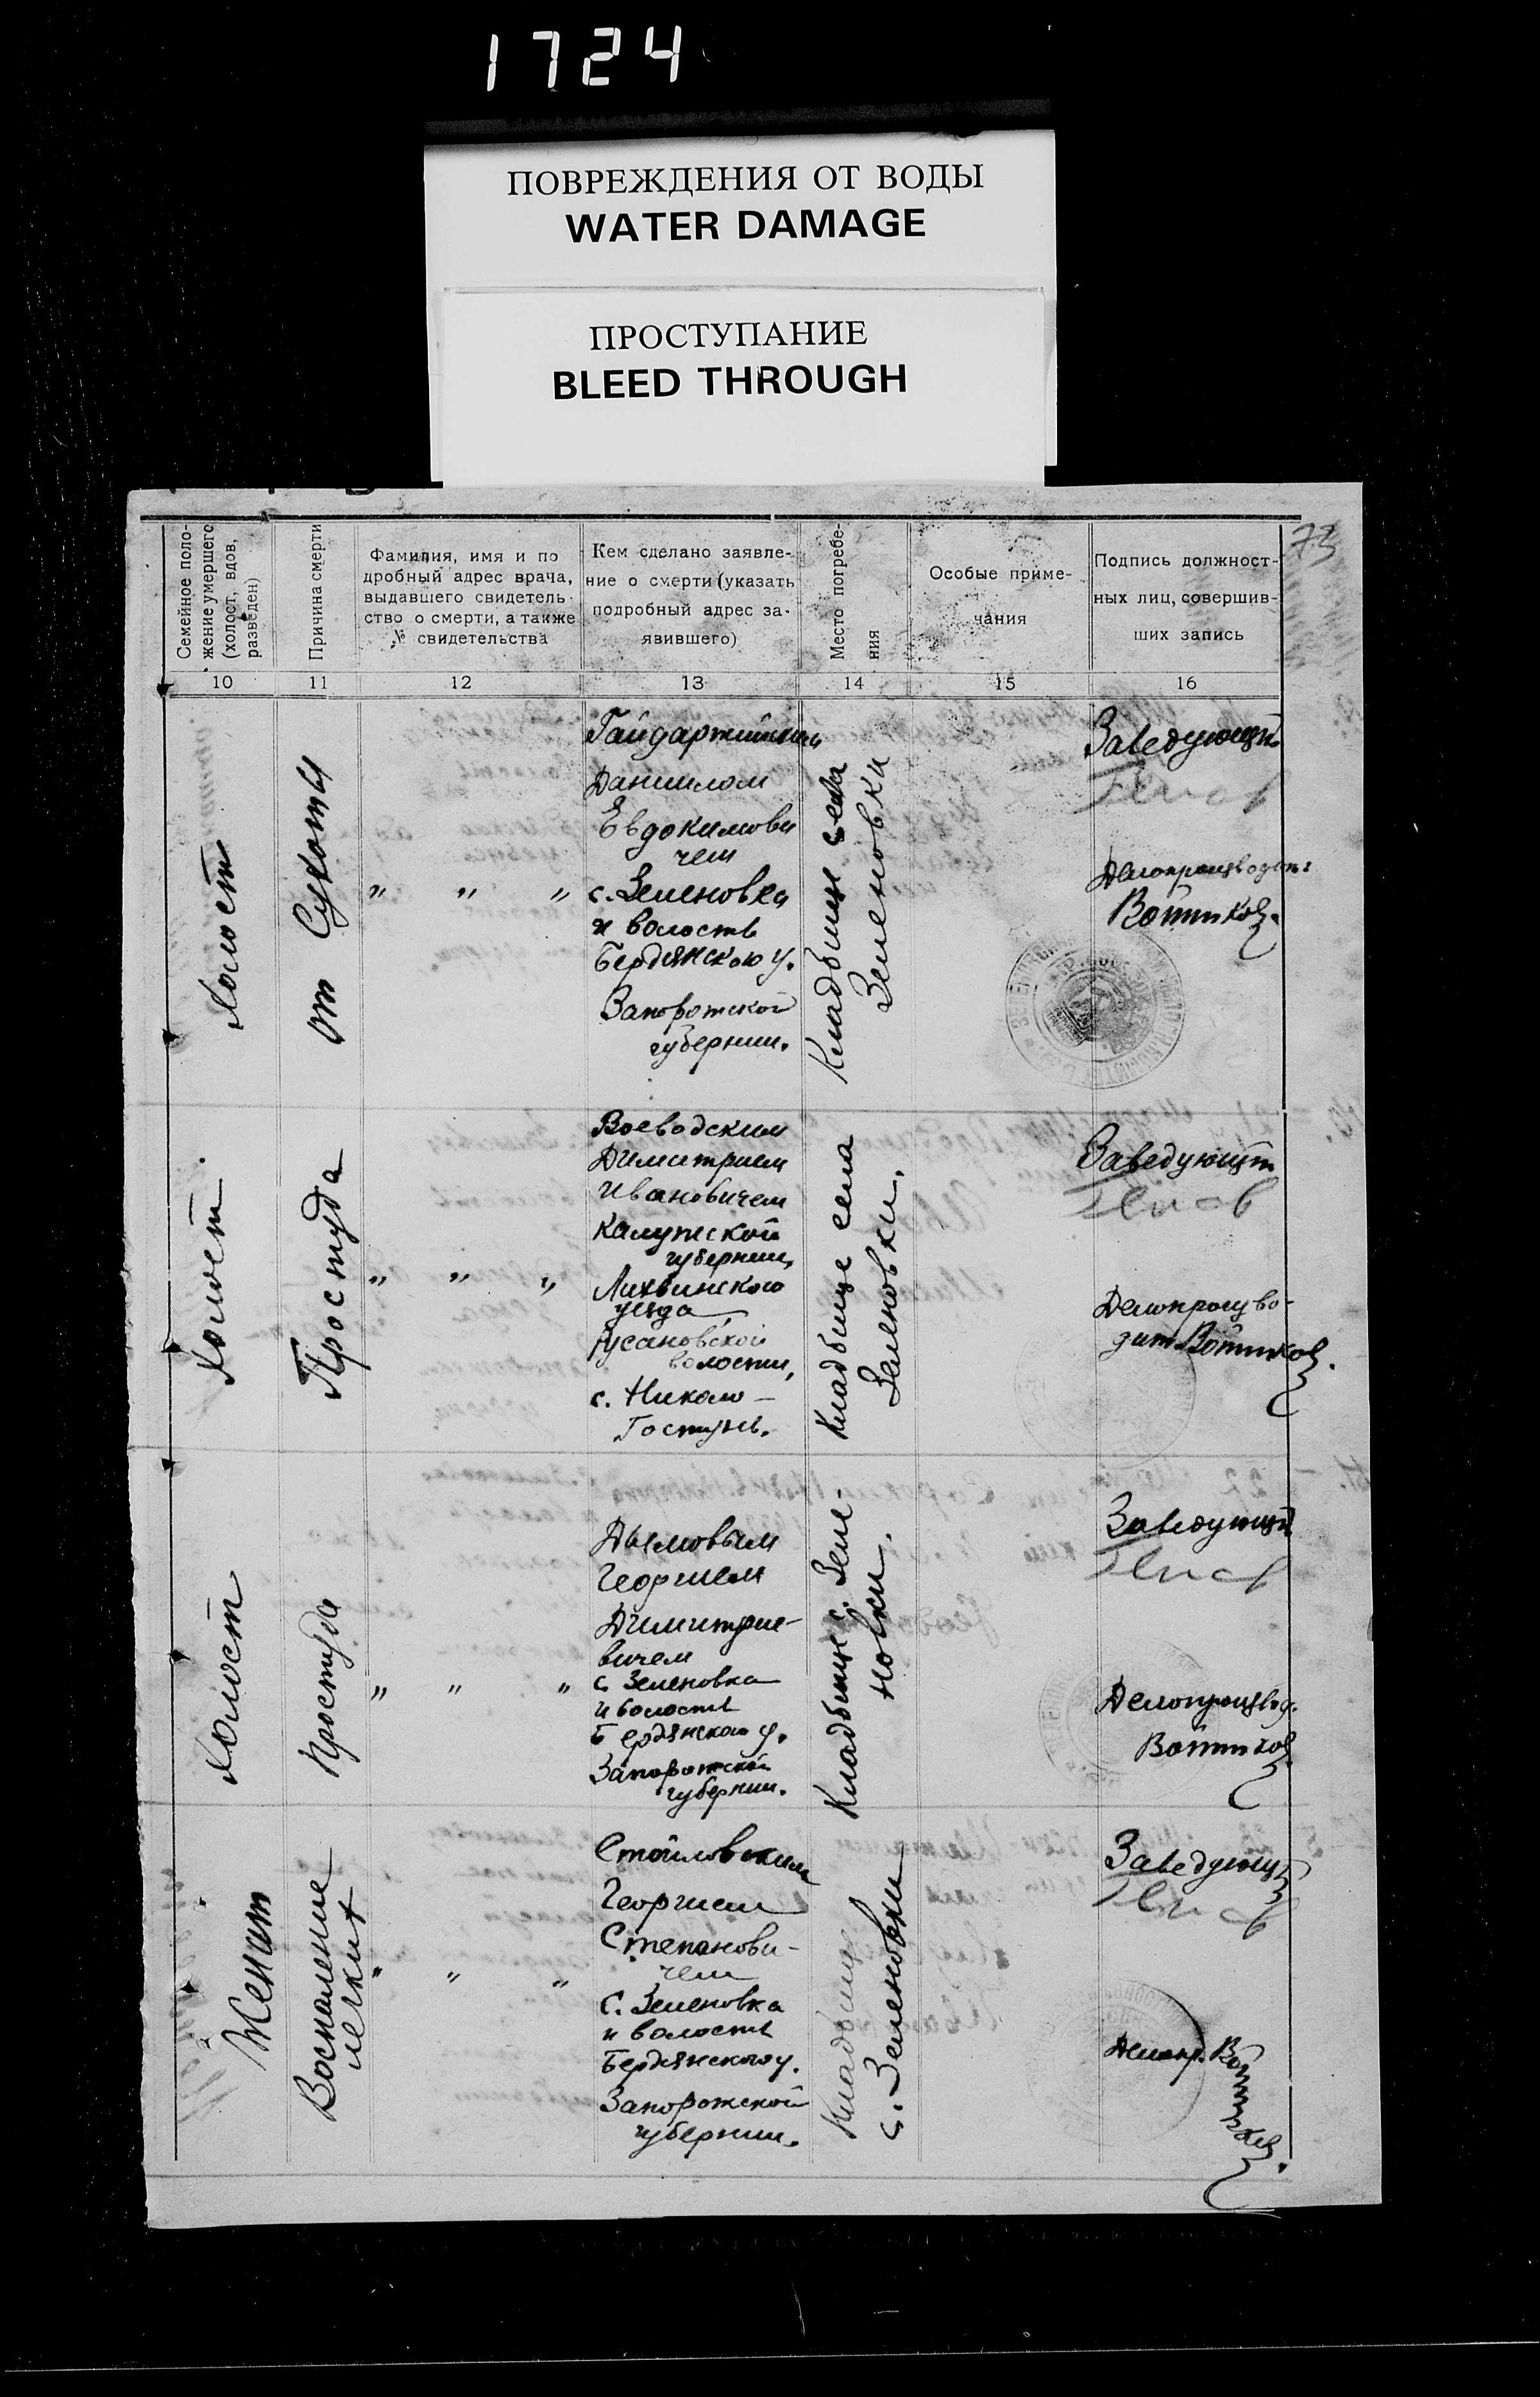 1724
ПОВРЕЖДЕНИЯ ОТ ВОДЫ
WATER DAMAGE
ПРОСТУПАНИЕ
BLEED THROUGH
73
Семейное поло-
жение умершего
(холост, вдов,
разведен)
Причина смерти
Фамилия, имя и по
дробный адрес врача,
выдавшего свидетель-
ство о смерти, а также
№ свидетельства
Кем сделано заявле-
ние о смерти (указать
подробный адрес за-
явившего)
Место погребе-
ния
Особые приме-
чания
Подпись должност-
ных лиц, совершив-
ших запись
10 11 12 13 14 15 16
Холост
от Сухоты
" " "
Даниилом
Евдокимови
чем
с. Зеленовка
и волость
Бердянскою у.
Запорожской
губернии.
Кладбище села
Зеленовки
Заведующий
Делопроизводит:
Войтиков
Холост.
Простуда
" " "
Воеводским
Димитрием
Ивановичем
Калужской
губернии,
Лихвинского
уезда,
Русановской
волости,
с. Николо-
Гостунь.
Кладбище села
Зеленовки.
Заведующий
Делопроизво-
дит Войтиков.
Холост
Простуда
" " "
Дымовым
Георгием
Димитрие-
вичем
с. Зеленовка
и волость
Бердянского у.
Запорожской
губернии.
Кладбище с. Зеле-
новки.
Заведующий
Делопроизвод.
Войтиков
Женат
Воспаление
легких
" " "
Стойловским
Георгием
Степанови-
чем
с. Зеленовка
и волость
Бердянского у.
Запорожской
губернии.
Кладбище
с. Зеленовки
Заведующ
Делопр. Войтиков.